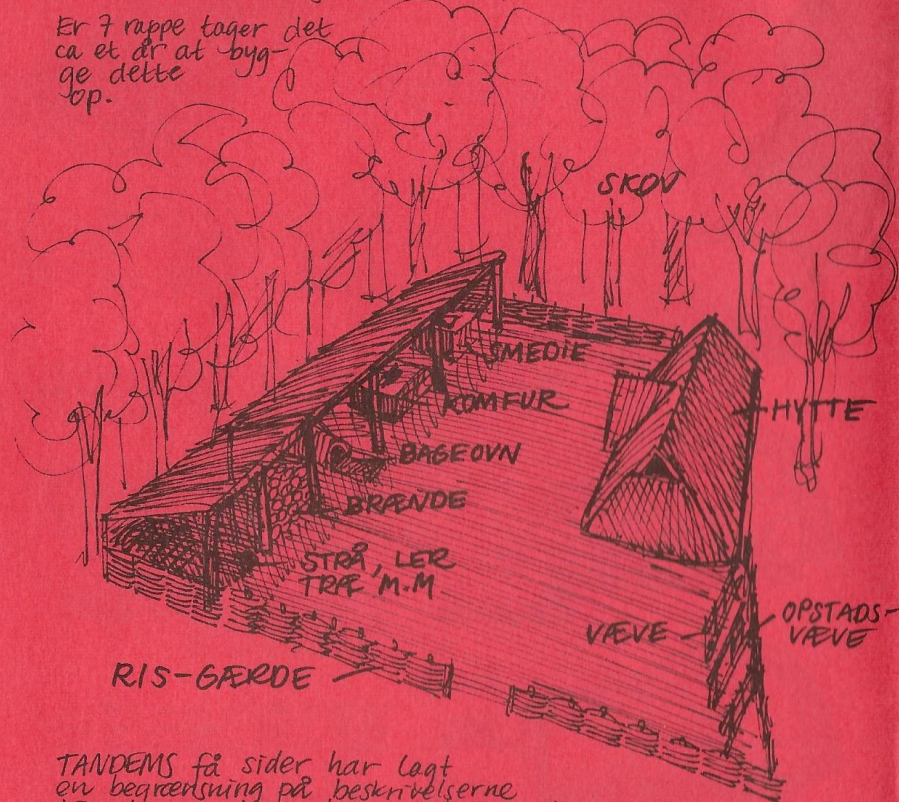 Er 7 rappe tager det
ca et år at byg-
ge dette
op.
SKOV
SMEDIE
KOMFUR
HYTTE
BAGEOVN
BRÆNDE
STRÅ, LER
TRÆ M.M
VÆVE
OPSTADS-
VÆVE
RIS-GÆRDE
TANDEMS få sider har lagt
en begrænsning på beskrivelserne